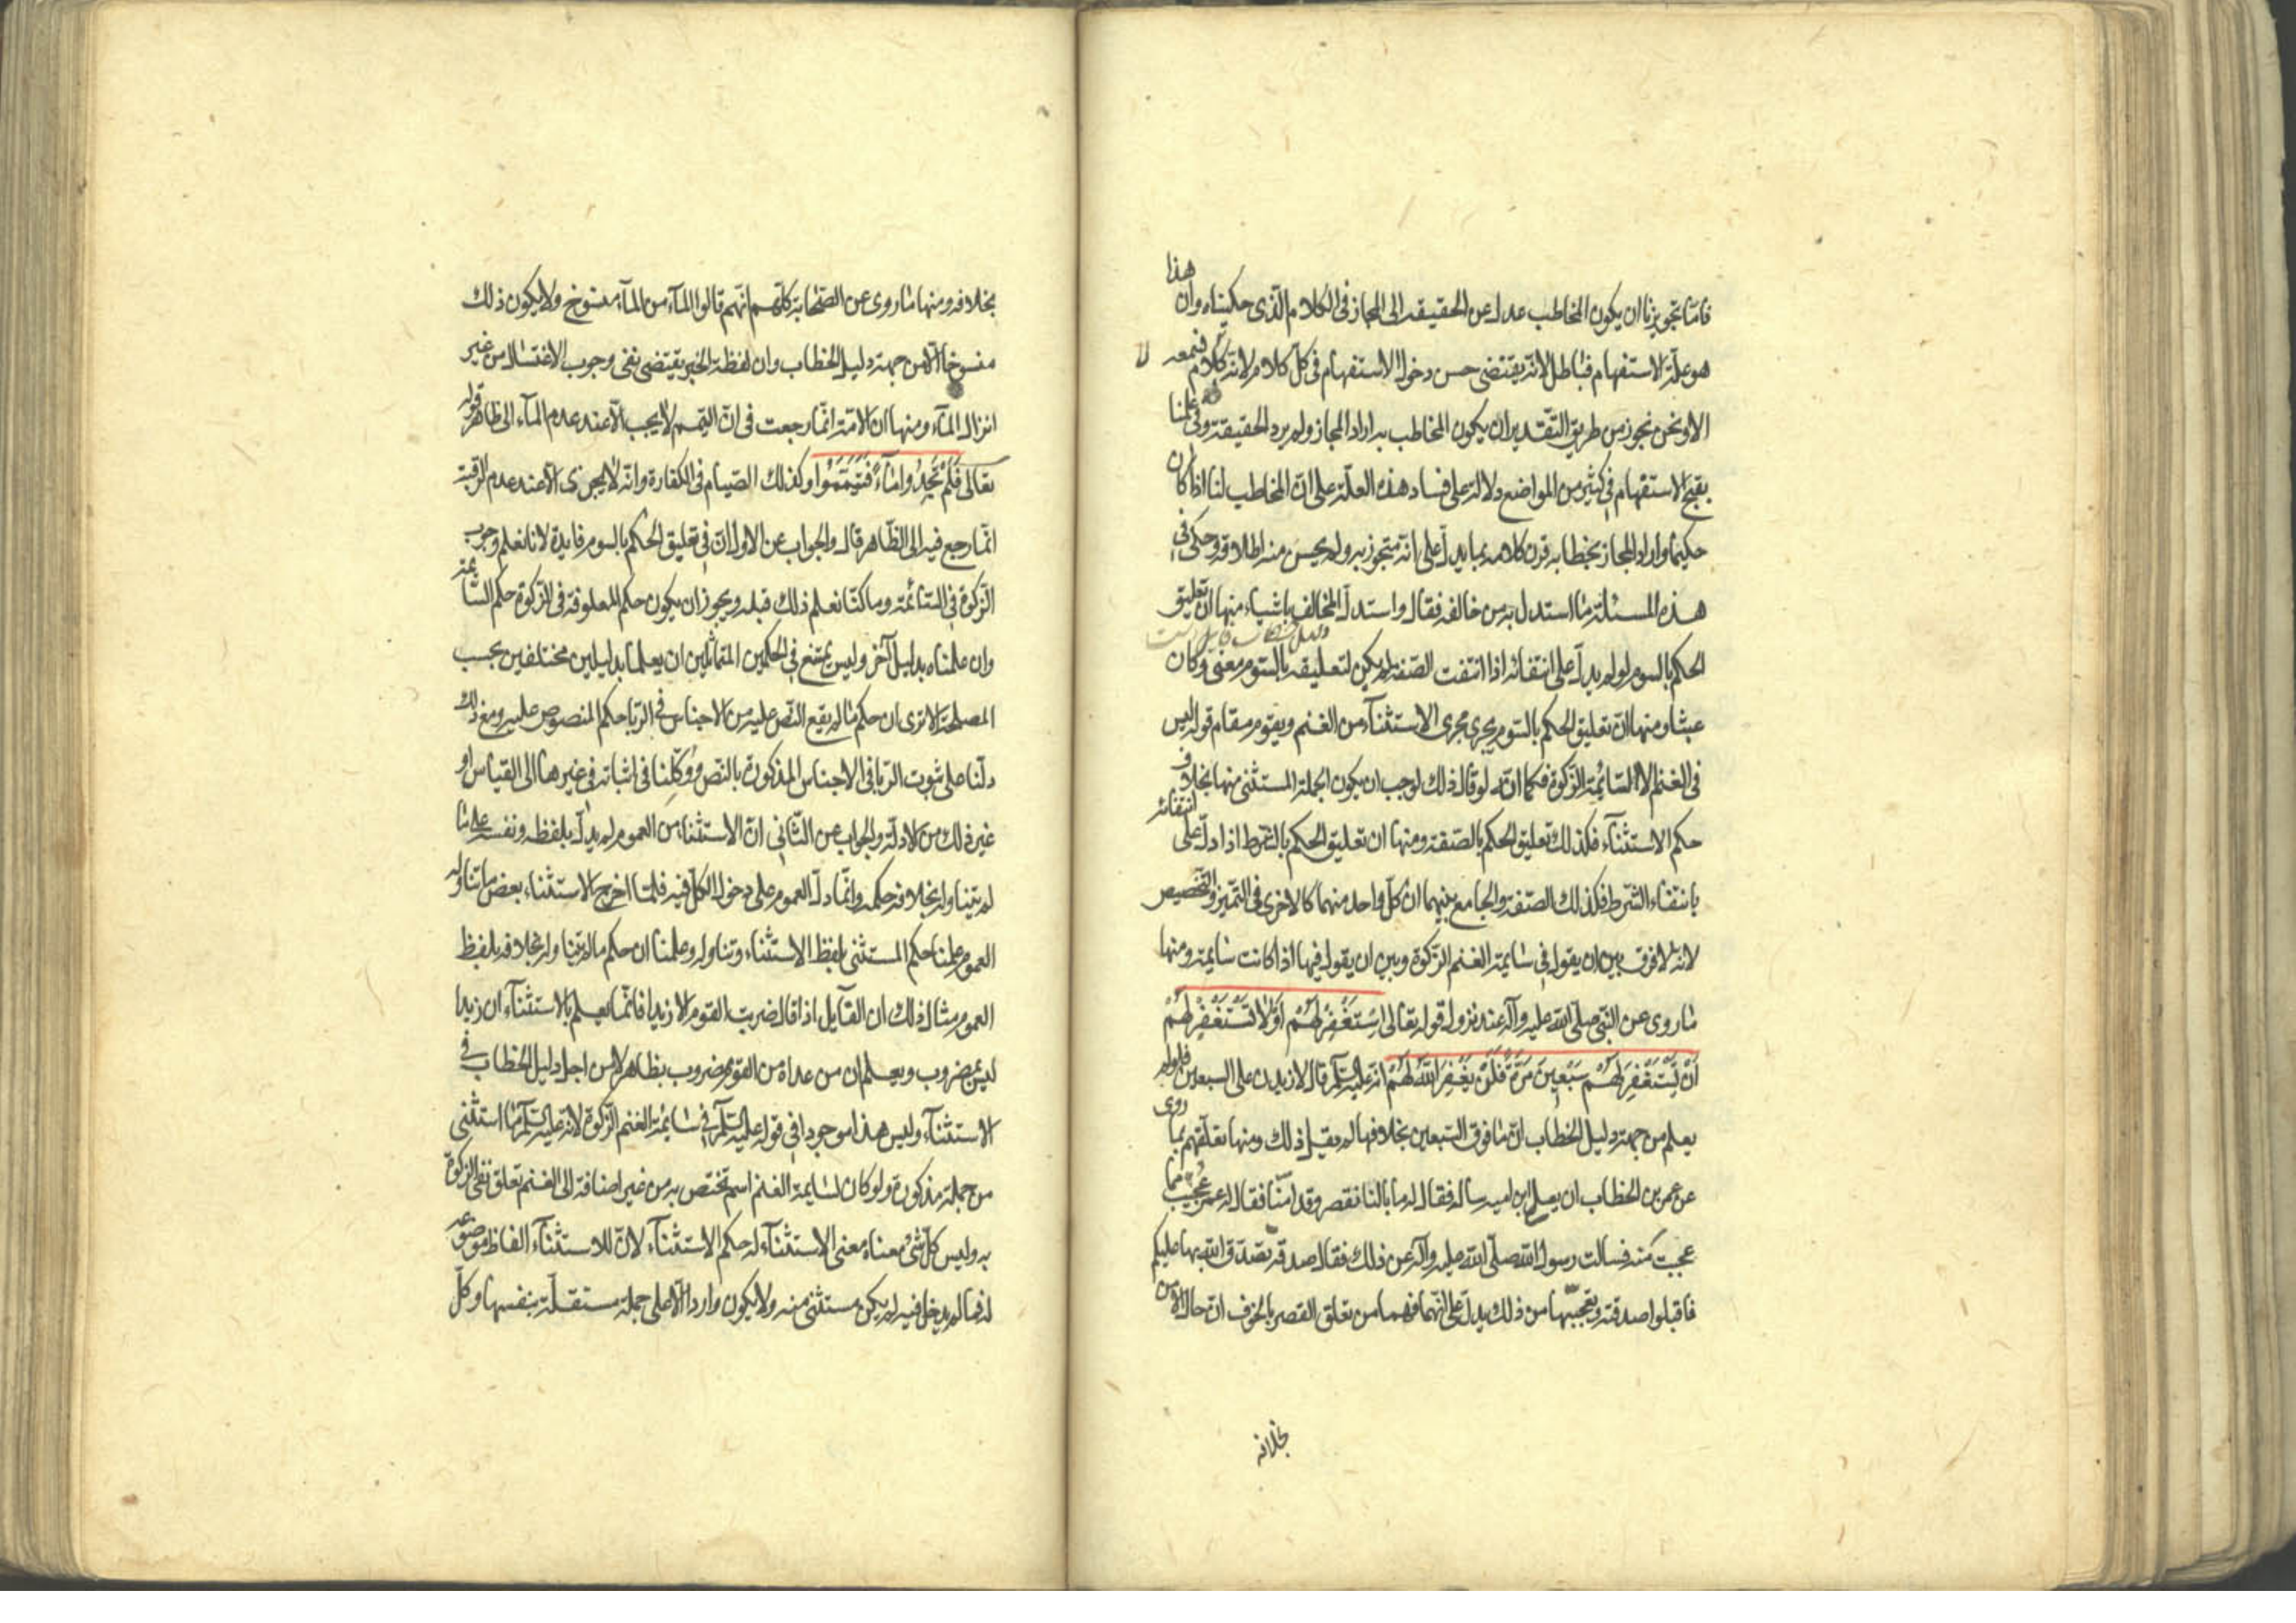 فامّا تجويزنا ان يكون المخاطب عدل عن الحقيقة الى المجاز في الكلام الّذي حكيناه وان هذا
هو علّة الاستفهام فباطل لانّه يقتضي حسن دخول الاستفهام في كلّ كلام لانّه لا كلام نسمعه
الا ونحن نجوز من طريق التّقدير ان يكون المخاطب به اراد المجاز ولم يرد الحقيقة وفي علمنا
بقبح الاستفهام في كثير من المواضع دلالة على فساد هذه العلّة على انّ المخاطب لنا اذا كان
حكيما واراد المجاز بخطابه قرن كلامه بما يدلّ على انّه متجوز به ولم يحسن منه اطلاقه وحكى في
هذه المسئلة ما استدل به من خالفه فقال واستدلّ المخالف باشياء منها انّ تعليق
الحكم بالسوم لو لم يدلّ على انتفائه اذا انتفت الصّفة لم يكن لتعليقه بالسّوم معنى وكان
عبثا ومنها انّ تعليق الحكم بالسّوم يجري مجرى الاستثنآء من الغنم ويقوم مقام قوله ليس
في الغنم الا السّائمة الزّكوة فكما انّه لو قال ذلك لوجب ان يكون الجملة المستثنى منها بخلاف
حكم الاستثنآء فكذلك تعليق الحكم بالصّفة ومنها ان تعليق الحكم بالشّرط اذا دلّ على انتفائه
بانتفاء الشّرط فكذلك الصّفة والجامع بينهما ان كلّ واحد منهما كالاخرى في التّميز والتّخصيص
لانّه لا فرق بين ان يقول في سايمة الغنم الزّكوة وبين ان يقول فيها اذا كانت سايمة ومنها
ما روى عن النّبيّ صلّى الله عليه وآله عند نزول قوله تعالى اسْتَغْفِرْ لَهُمْ اَوْ لَا تَسْتَغْفِرْ لَهُمْ
اِنْ تَسْتَغْفِرْ لَهُمْ سَبْعِينَ مَرَّةً فَلَنْ يَغْفِرَ اللهُ لَهُمْ انّه عليه السّلم قال لازيدن على السبعين فلو لم
يعلم من جهة دليل الخطاب انّ ما فوق السّبعين بخلافها لم يقل ذلك ومنها تعلّقهم بما روى
عن عمر بن الخطاب ان يعلى بن اميه ساله فقال له ما بالنا نقصر وقد امنّا فقال له عمر عجبت مما
عجبت منه فسالت رسول الله صلّى الله عليه وآله عن ذلك فقال صدقة تصدّق الله بها عليكم
فاقبلوا صدقته وتعجبّهما من ذلك يدلّ على انّهما فهما من تعلق القصر بالخوف انّ حال الامن
بخلافه
بخلافه ومنها ما روى عن الصّحابة كلّهم انّهم قالوا المآء من المآء منسوخ ولا يكون ذلك
منسوخا الّا من جهة دليل الخطاب وان لفظة الخبر يقتضى نفى وجوب الاغتسال من غير
انزال المآء ومنها ان الامّة انّما رجعت في انّ التيمّم لا يجب الّا عند عدم المآء الى ظاهر قوله
تعالى فَلَمْ تَجِدُوا مَاءً فَتَيَمَّمُوا وكذلك الصّيام في الكفارة وانّه لا يجزى الّا عند عدم الرّقبة
انّما رجع فيه الى الظّاهر قال والجواب عن الاول انّ في تعليق الحكم بالسوم فايدة لانا نعلم وجوب
الزّكوة في السّائمة وما كنّا نعلم ذلك قبله ويجوز ان يكون حكم المعلوفة في الزّكوة حكم السّائمة
وان علمناه بدليل آخر وليس يمتنع في الحكمين المتماثلين ان يعلما بدليلين مختلفين بحسب
المصلحة الا ترى ان حكم ما لم يقع النّص عليه من الاجناس في الرّبا حكم المنصوص عليه ومع ذلك
دلّنا على ثبوت الرّبا في الاجناس المذكورة بالنّص ووكلنا في اثباته في غيرها الى القياس او
غير ذلك من الادلّة والجواب عن الثّاني انّ الاستثناء من العموم لم يدلّ بلفظه ونفسه على ما
لم يتناوله بخلافه حكمه وانّما دلّ العموم على دخول الكلّ فيه فلمّا اخرج الاستثناء بعض ما تناوله
العموم علمنا حكم المستثنى بلفظ الاستثناء وتناوله وعلمنا ان حكم ما لم يتناوله بخلافه بلفظ
العموم مثال ذلك ان القآيل اذا قال ضربت القوم الا زيدا فانّما يعلم بالاستثنآء ان زيدا
ليس بمضروب ويعلم ان من عداه من القوم مضروب بظاهر لا من اجل دليل الخطاب في
الاستثنآء وليس هذا موجودا في قوله عليه السّلم في سايمة الغنم الزّكوة لانّه عليه السّلم ما استثنى
من جملة مذكورة ولو كان لسايمة الغنم اسم تختص به من غير اضافة الى الغنم تعلق نفى الزّكوة
به وليس كلّ شيء معناه معنى الاستثنآء له حكم الاستثنآء لانّ للاستثنآء الفاظ موضوعه
له فما لم يدخل فيه لم يكن مستثنى منه ولا يكون واردا الّا على جملة مستقلّة بنفسها وكلّ